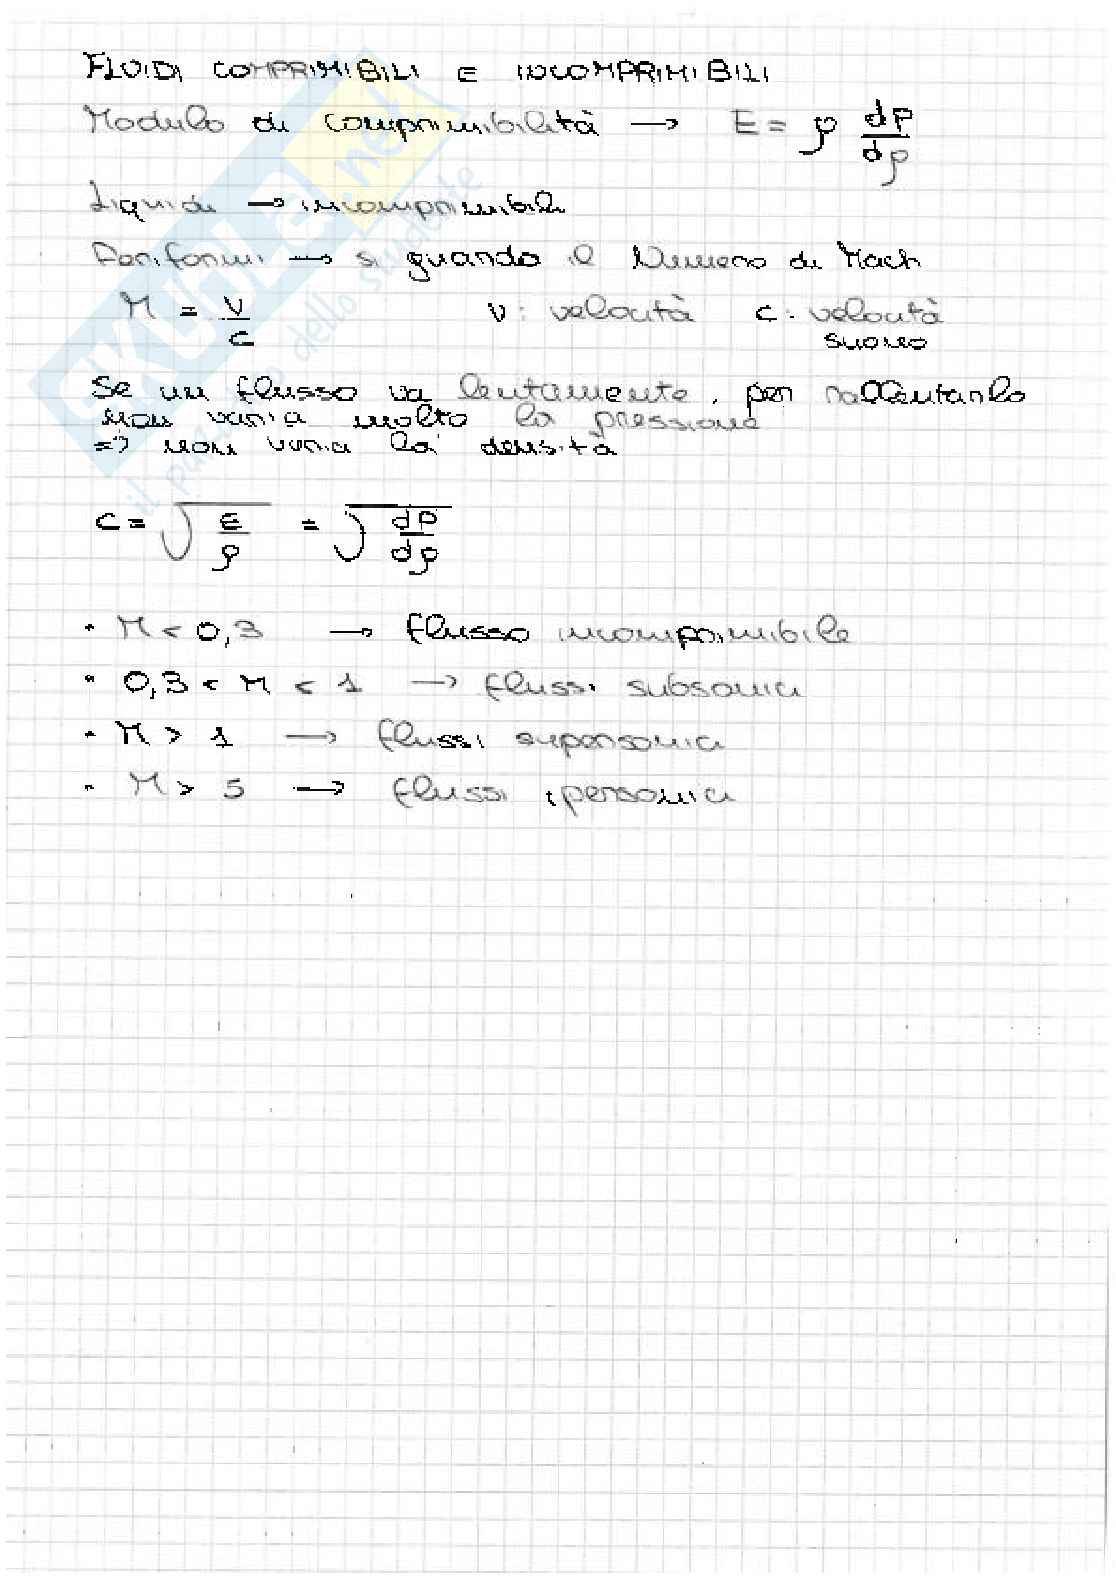 FLUIDI COMPRIMIBILI E INCOMPRIMIBILI
Modulo di comprimibilità → E = ρ dP/dρ
Liquidi → incomprimibili
Aeriformi → si quando il Numero di Mach
M = V/c v: velocità c: velocità
suono
Se un flusso va lentamente, per rallentarlo
non varia molto la pressione
=> non varia la densità
c = √(E/ρ) = √(dP/dρ)
• M < 0,3 → flusso incomprimibile
• 0,3 < M < 1 → flussi subsonici
• M > 1 → flussi supersonici
• M > 5 → flussi ipersonici
SKUOLA.net
dello studente